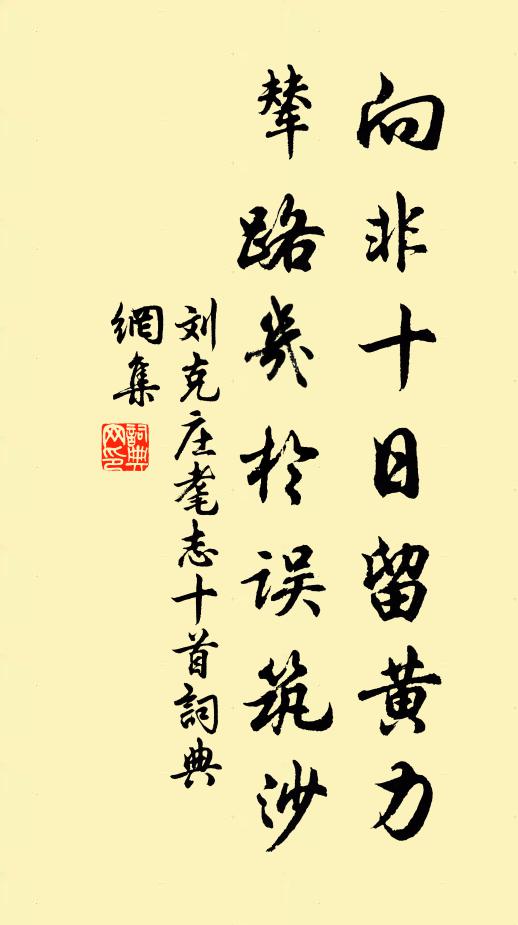 向非十日留黄力
辇路几於误筑沙
刘克庄耄志十首詞典
網集
詞典
网印